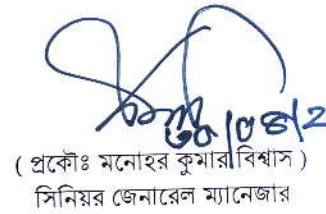 ৩০/০৪/২
( প্রকৌঃ মনোহর কুমার বিশ্বাস )
সিনিয়র জেনারেল ম্যানেজার